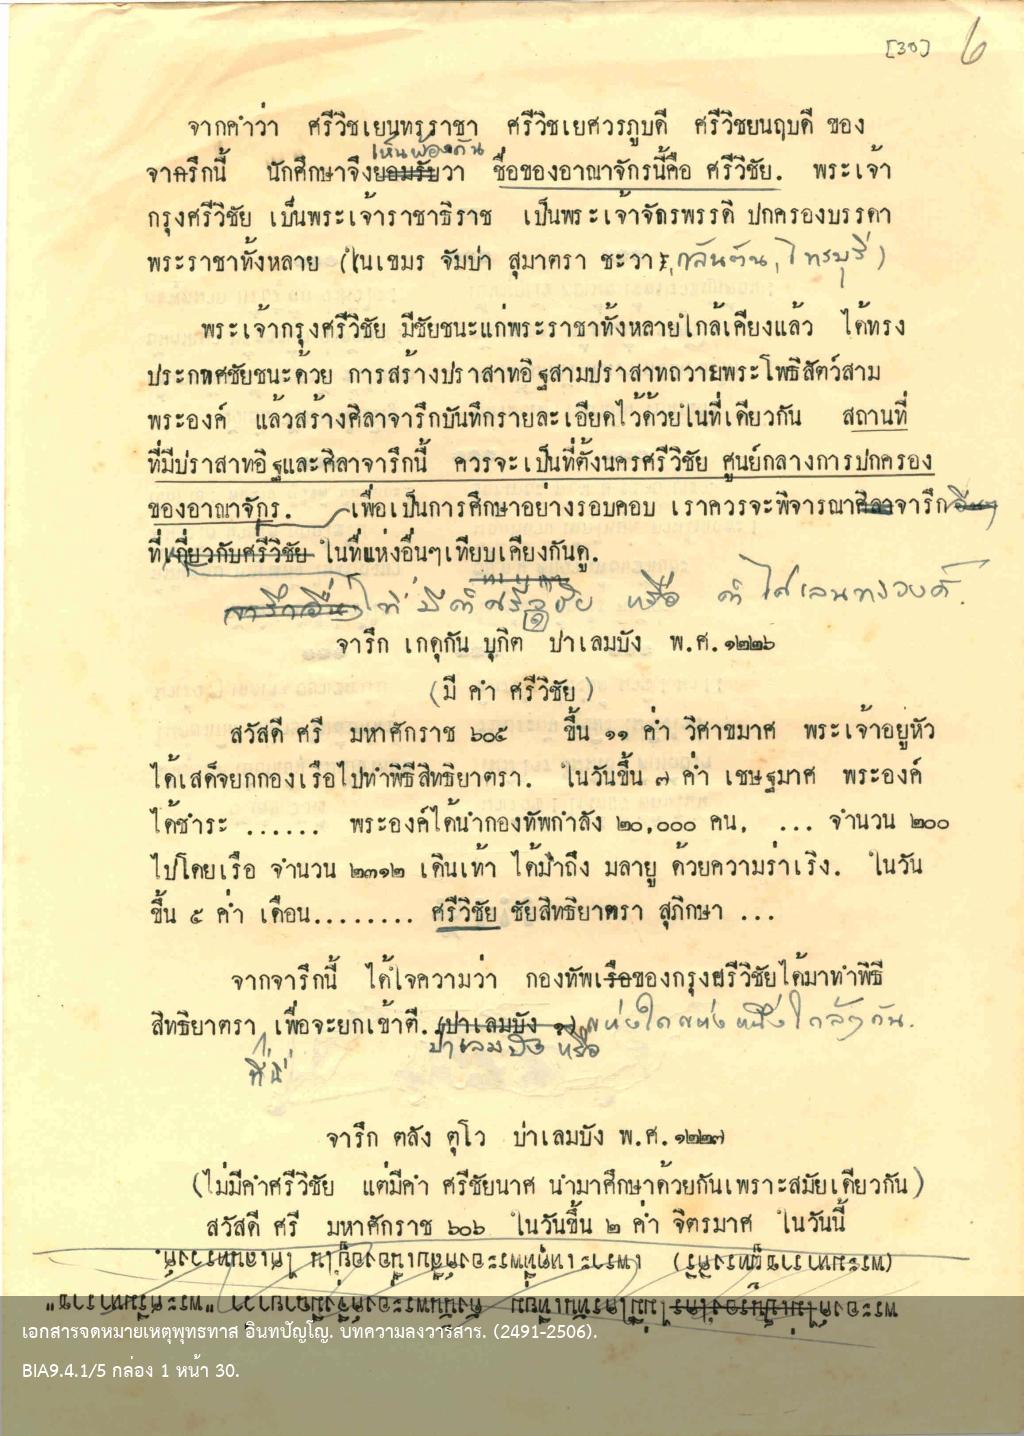 [30] 6
จากคำว่า ศรีวิชเยนทรราชา ศรีวิชเยศวรภูบดี ศรีวิชยนฤบดี ของ
เห็นพ้องกัน
จารึกนี้ นักศึกษาจึงยอมรับวา ชื่อของอาณาจักรนี้คือ ศรีวิชัย. พระเจ้า
กรุงศรีวิชัย เป็นพระเจ้าราชาธิราช เป็นพระเจ้าจักรพรรดิ ปกครองบรรดา
พระราชาทั้งหลาย (ในเขมร จัมบ่า สุมาตรา ชะวา, กลันตัน, ไทรบุรี)
พระเจ้ากรุงศรีวิชัย มีชัยชนะแก่พระราชาทั้งหลายใกล้เคียงแล้ว ได้ทรง
ประกาศชัยชนะด้วย การสร้างปราสาทอิฐสามปราสาทถวายพระโพธิสัตว์สาม
พระองค์ แล้วสร้างศิลาจารึกบันทึกรายละเอียดไว้ด้วยในที่เดียวกัน สถานที่
ที่มีปราสาทอิฐและศิลาจารึกนี้ ควรจะเป็นที่ตั้งนครศรีวิชัย ศูนย์กลางการปกครอง
ของอาณาจักร. เพื่อเป็นการศึกษาอย่างรอบคอบ เราควรจะพิจารณาศิลาจารึกอื่นๆ
ที่เกี่ยวกับศรีวิชัย ในที่แห่งอื่นๆเทียบเคียงกันดู.
จารึกอื่นๆ ที่มีคำศรีวิชัย หรือ คำไศเลนทรวงศ์.
จารึก เกดุกัน บุกิต ปาเลมบัง พ.ศ. ๑๒๒๖
(มี คำ ศรีวิชัย)
สวัสดี ศรี มหาศักราช ๖๐๕ ขึ้น ๑๑ ค่ำ วิศาขมาศ พระเจ้าอยู่หัว
ได้เสด็จยกกองเรือไปทำพิธีสิทธิยาตรา. ในวันขึ้น ๗ ค่ำ เชษฐมาศ พระองค์
ได้ชำระ ...... พระองค์ได้นำกองทัพกำลัง ๒๐,๐๐๐ คน, ... จำนวน ๒๐๐
ไปโดยเรือ จำนวน ๒๓๑๒ เดินเท้า ได้มาถึง มลายู ด้วยความร่าเริง. ในวัน
ขึ้น ๕ ค่ำ เดือน........ ศรีวิชัย ชัยสิทธิยาตรา สุภิกษา ...
จากจารึกนี้ ได้ใจความว่า กองทัพเรือของกรุงศรีวิชัยได้มาทำพิธี
สิทธิยาตรา เพื่อจะยกเข้าตี. (ปาเลมบัง ?) แห่งใดแห่งหนึ่งใกล้ๆกัน.
ที่นี่ ปาเลมบัง หรือ
จารึก ตลัง ตุโว ปาเลมบัง พ.ศ. ๑๒๒๗
(ไม่มีคำศรีวิชัย แต่มีคำ ศรีชัยนาศ นำมาศึกษาด้วยกันเพราะสมัยเดียวกัน)
สวัสดี ศรี มหาศักราช ๖๐๖ ในวันขึ้น ๒ ค่ำ จิตรมาศ ในวันนี้
เอกสารจดหมายเหตุพุทธทาส อินทปัญโญ. บทความลงวารสาร. (2491-2506).
BIA9.4.1/5 กล่อง 1 หน้า 30.